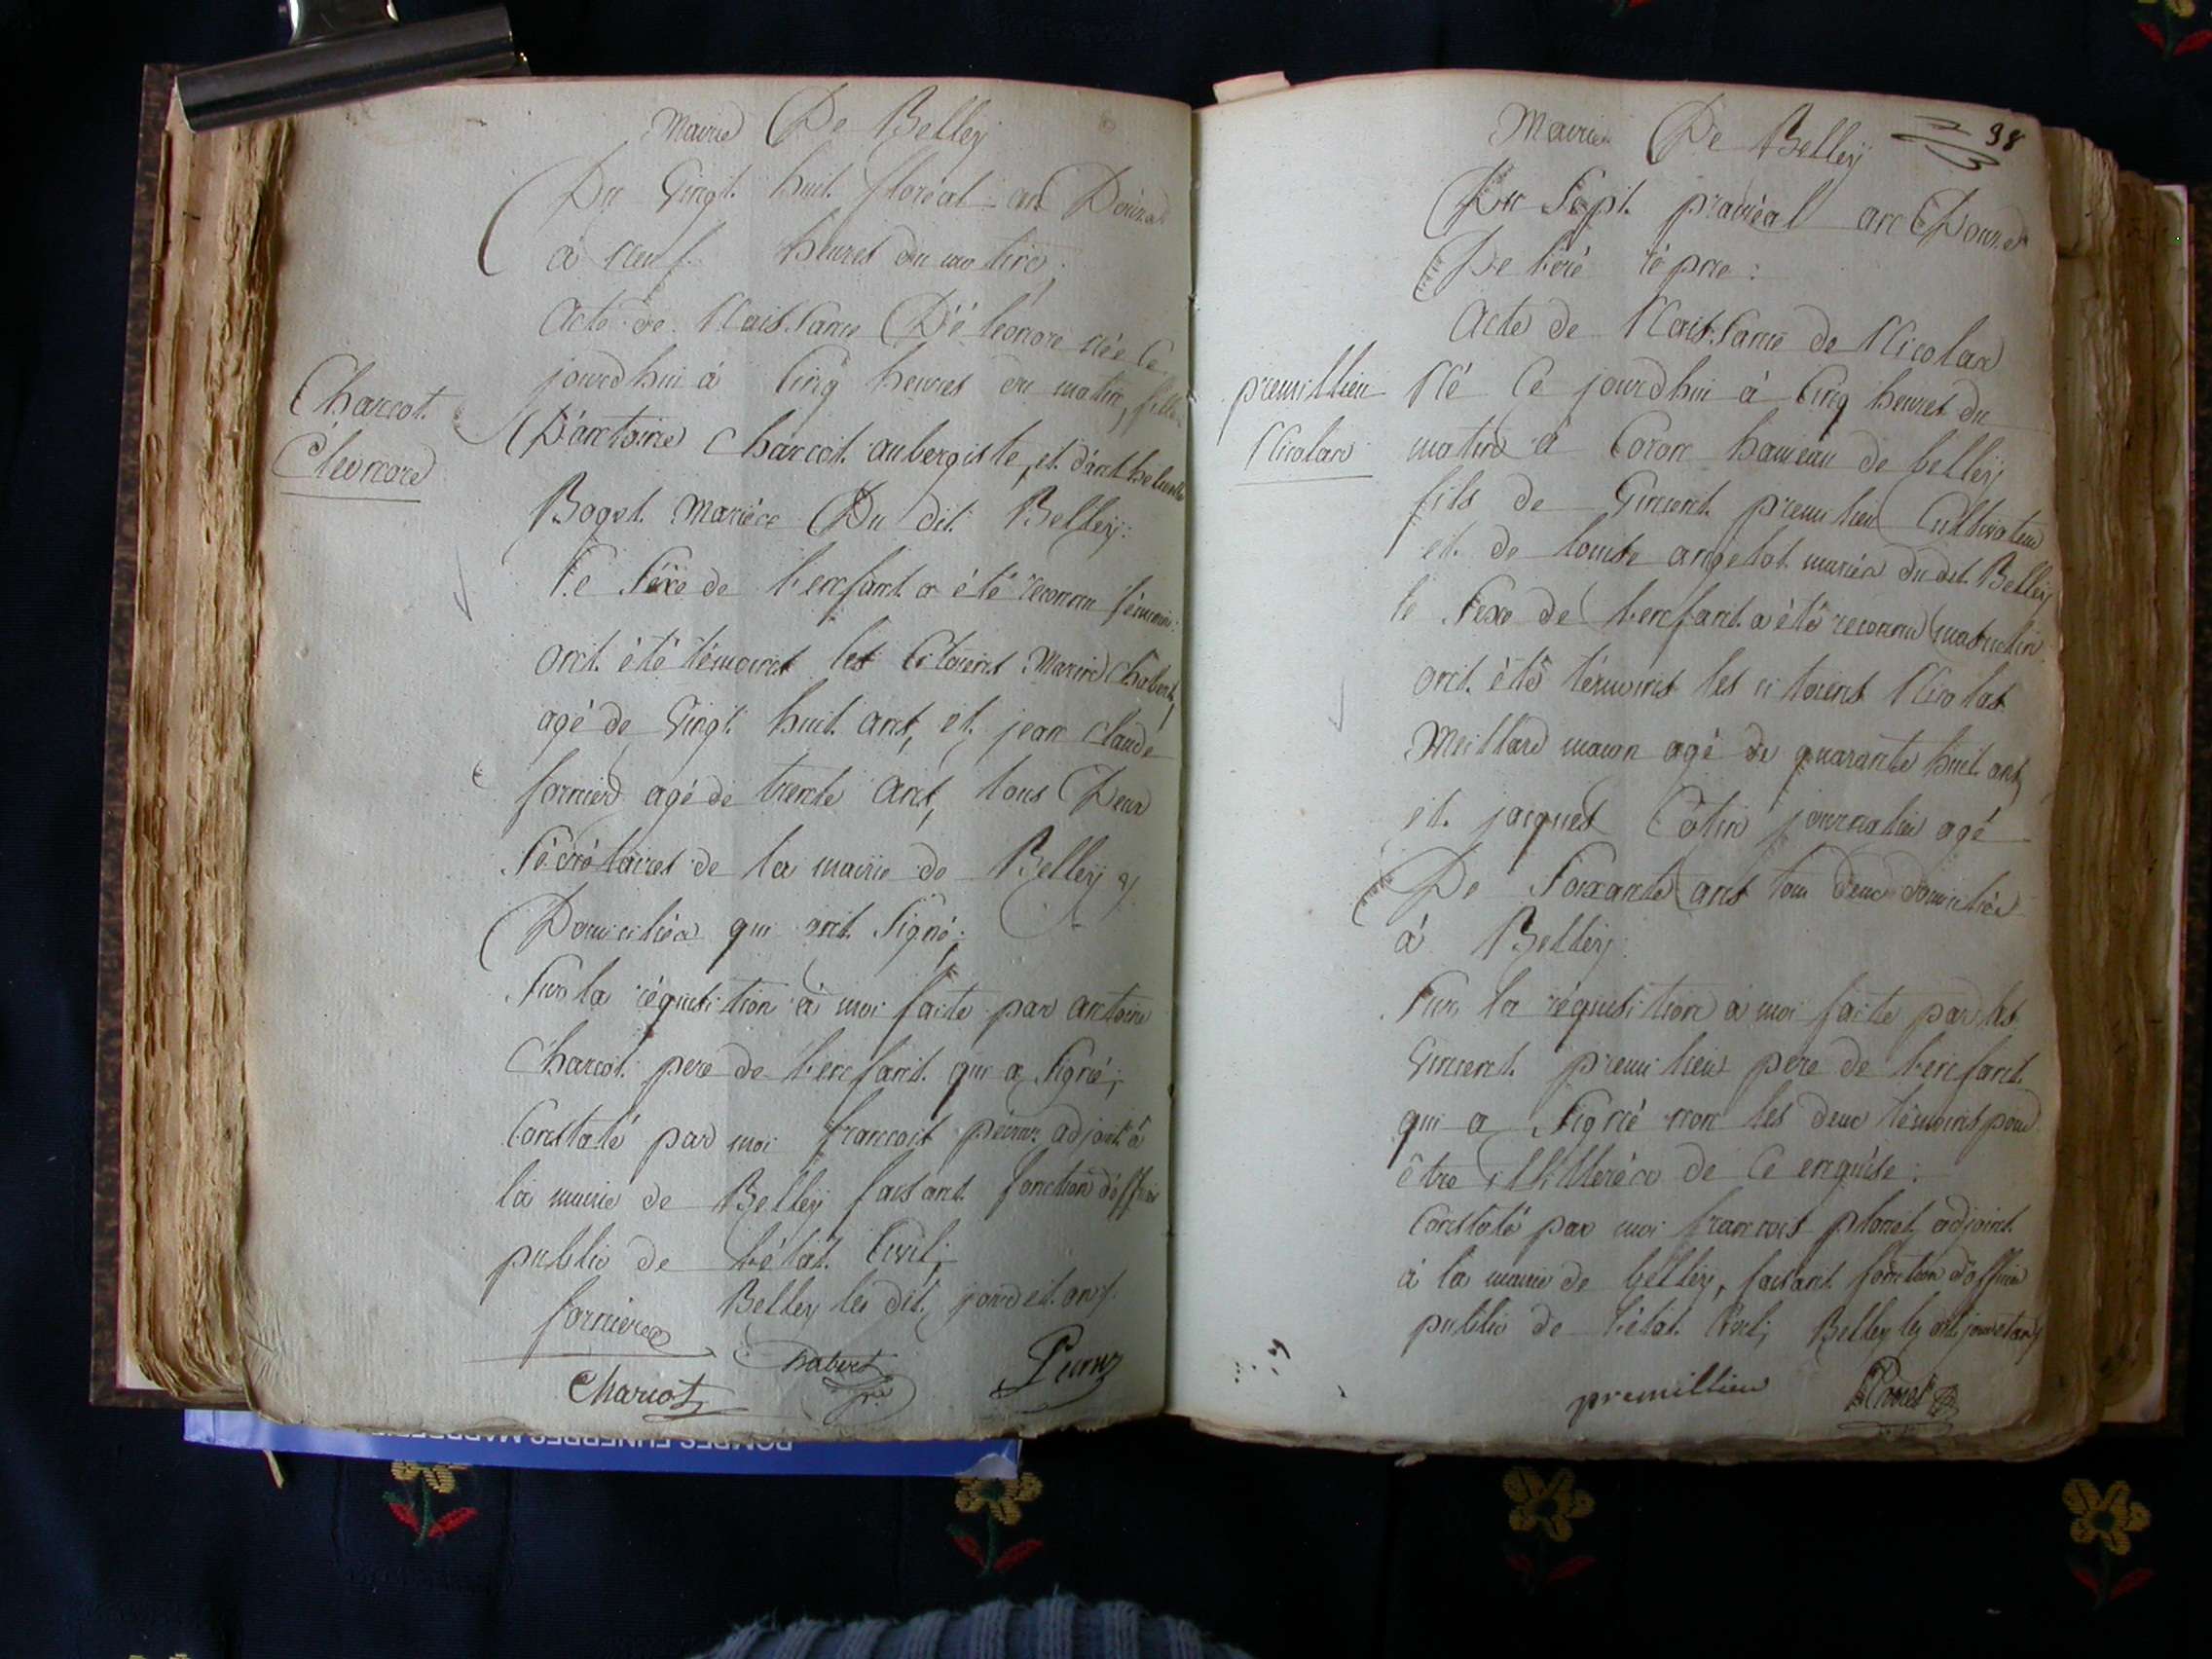 Mairie De Belleÿ
Du Vingt huit floréal an Douze
à neuf heures du matin;
Acte de Naissance D'éléonore née Ce
jourdhui à Cinq heures du matin, fille
Charcot
Éléonore
D'antoine Charcot aubergiste, et d'anthelmette
Bogot Mariées Du dit Belleÿ:
Le Sexe de l'enfant a été reconnu féminin:
ont été témoins les Citoiens Marin Chabert,
agé de Vingt huit ans, et jean Claude
fornier agé de trente Ans, tous Deux
Sécrétaires de la mairie de Belleÿ y
Domiciliés qui ont Signé;
Sur la réquisition à moi faite par antoine
Charcot pere de l'enfant qui a Signé;
Constaté par moi françois adjoint à
la mairie de Belleÿ faisant fonction d'officier
public de l'état Civil;
Belleÿ les dit, jour et an
fornier
Chabert
Charcot
Mairie De Belleÿ
98
Du Sept prairéal an Douze
De l'ère
Acte de Naissance de Nicolas
premillieu
Nicolas
Né Ce jourdhui à Cinq heures du
matin à Coron hameau de belleÿ
fils de Vincent premillieu Cultivateur
et de louise angelot mariés du dit Belleÿ
le Sexe de l'enfant a été reconnu masculin
ont été témoins les citoiens Nicolas
Meillard macon agé de quarante huit ans
et jacques Cotin journalier agé
De Soixante ans tous deux domiciliés
à Belleÿ:
Sur la réquisition à moi faite par les
Vincent premillieu pere de l'enfant
qui a Signé non les deux témoins pour
être illitterés de Ce enquise:
Constaté par moi francois plonet adjoint
à la mairie de belleÿ, faisant fonction d'officier
public de l'état Civil; Belleÿ les dit jour et an
premillieu
Plonet